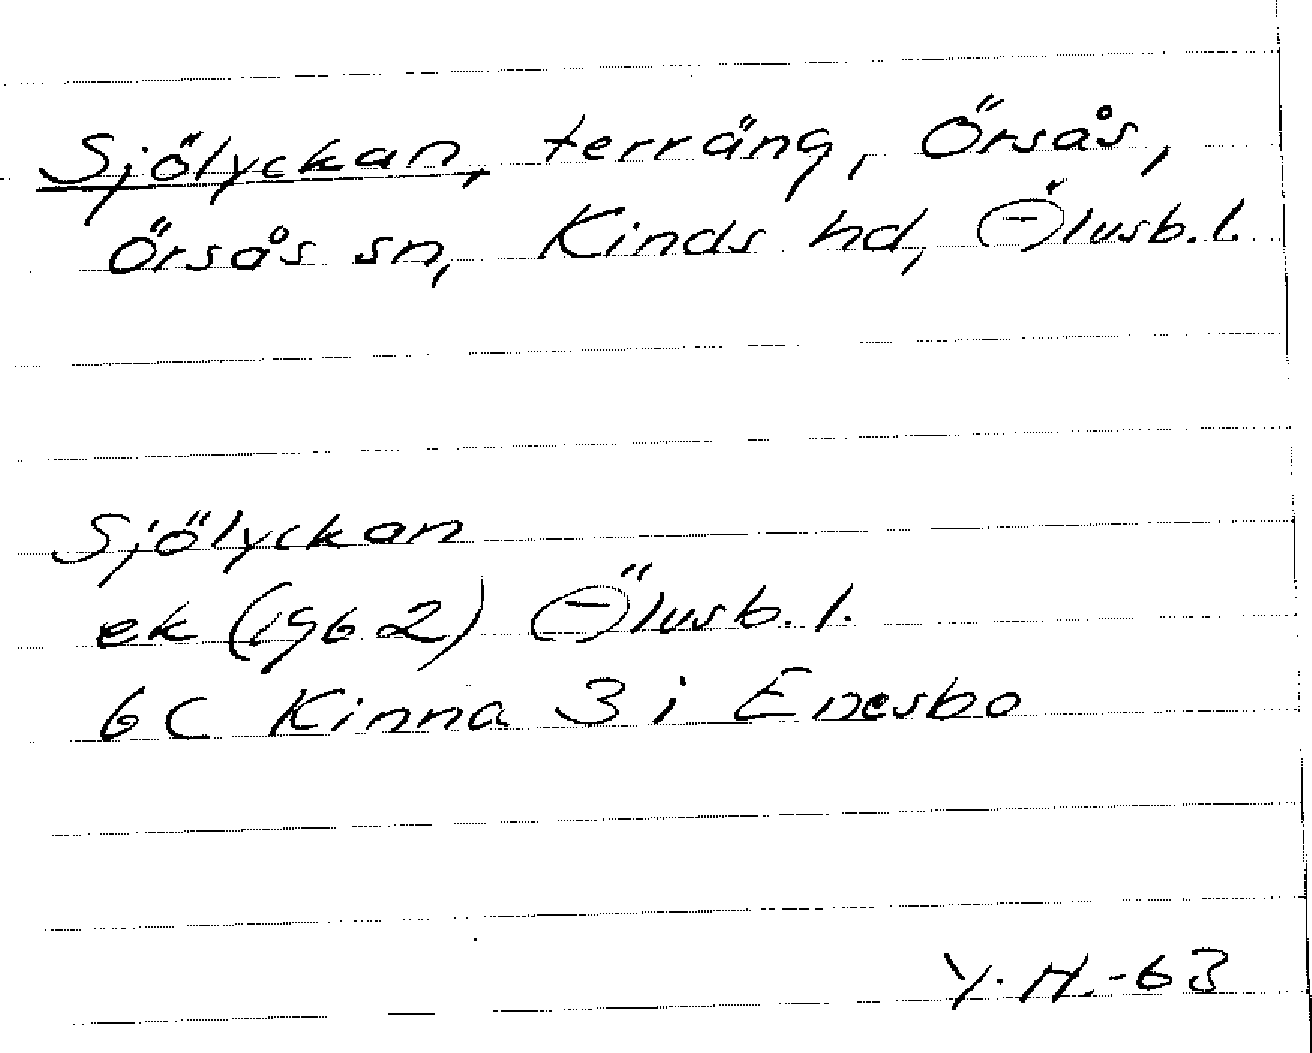 Sjölyckan, terräng, Örsås,
Örsås sn, Kinds hd, Älvsb. l.
Sjölyckan
ek (1962) Älvsb. l.
6C Kinna 3i Enesbo
Y.H.-63